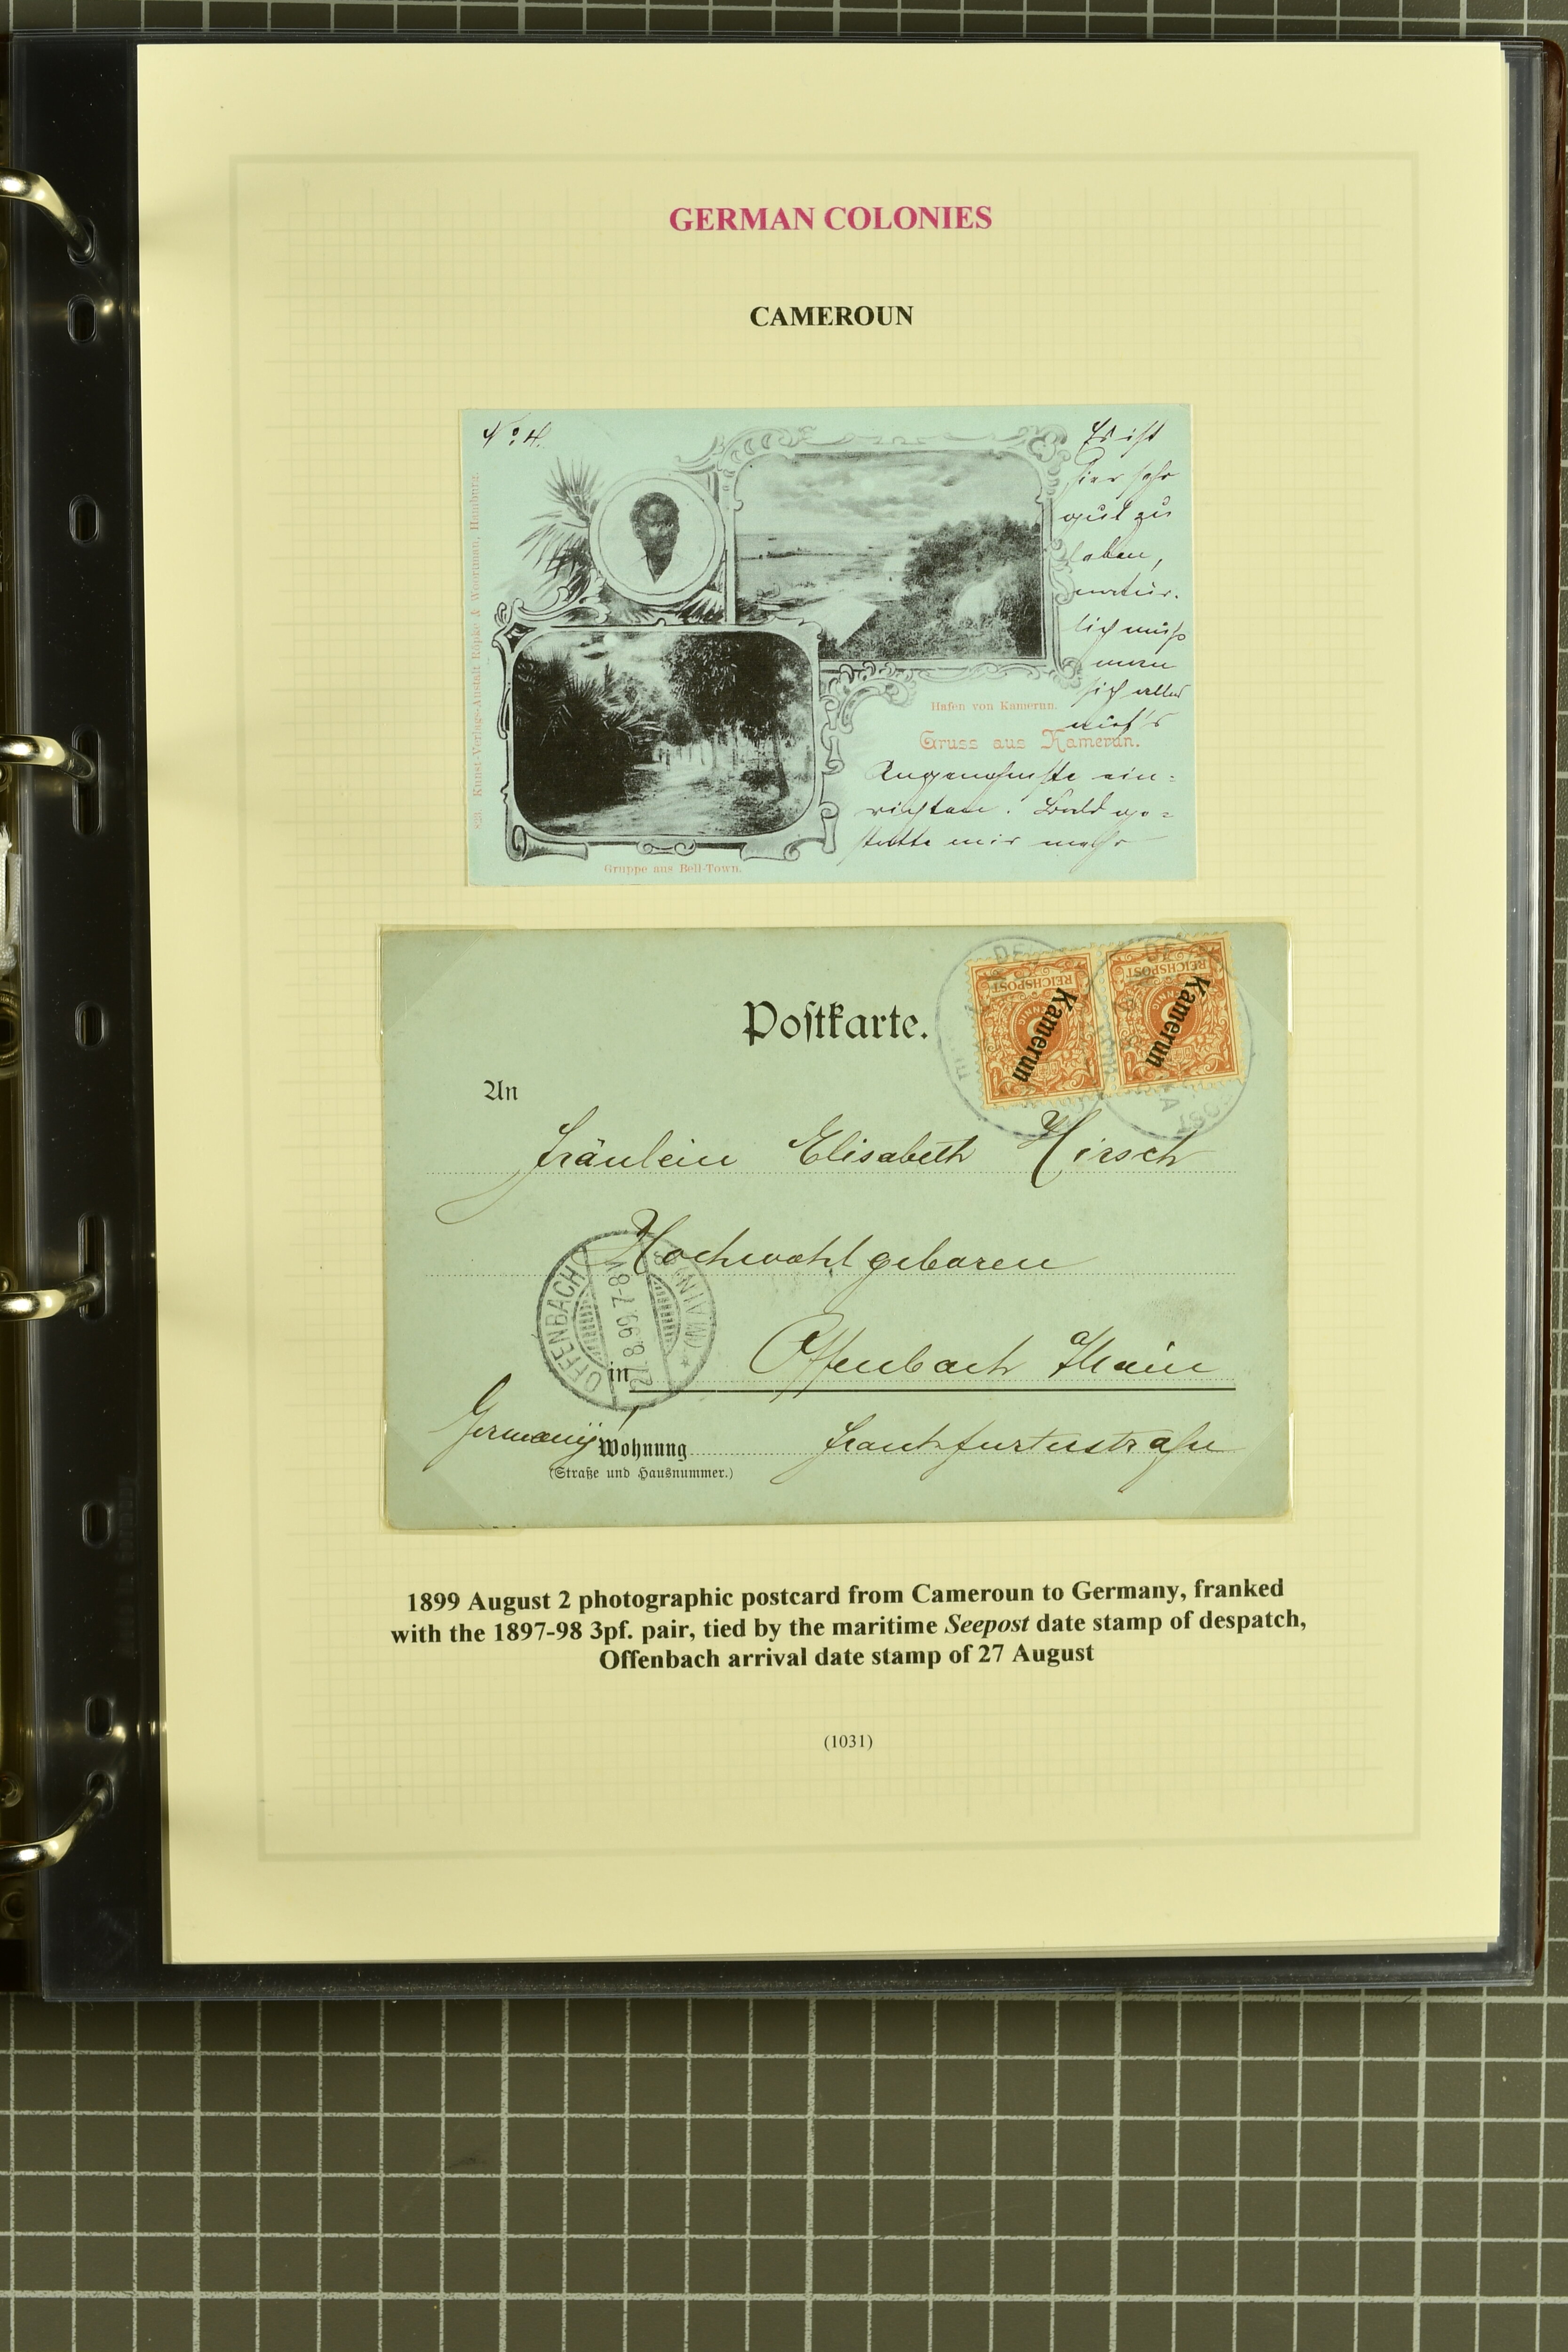 GERMAN COLONIES
CAMEROUN
No. 4.
Es ist
hier sehr
gut zu
leben,
natür-
lich muß
man
sich alles
auf's
Angenehmste ein-
richten. Bald ge-
mir mehr
823 Kunst-Verlags-Anstalt Röpke & Woortman, Hamburg.
Hafen von Kamerun.
Gruss aus Kamerun.
Gruppe aus Bell-Town.
Postkarte.
REICHSPOST
Kamerun
REICHSPOST
Kamerun
An
Fräulein Elisabeth Hirsch
Hochwohlgeboren
OFFENBACH (MAIN)
27.8.99. 7-8V
in Offenbach a/Main
Germany! Wohnung Frankfurterstraße
(Straße und Hausnummer.)
1899 August 2 photographic postcard from Cameroun to Germany, franked
with the 1897-98 3pf. pair, tied by the maritime Seepost date stamp of despatch,
Offenbach arrival date stamp of 27 August
(1031)